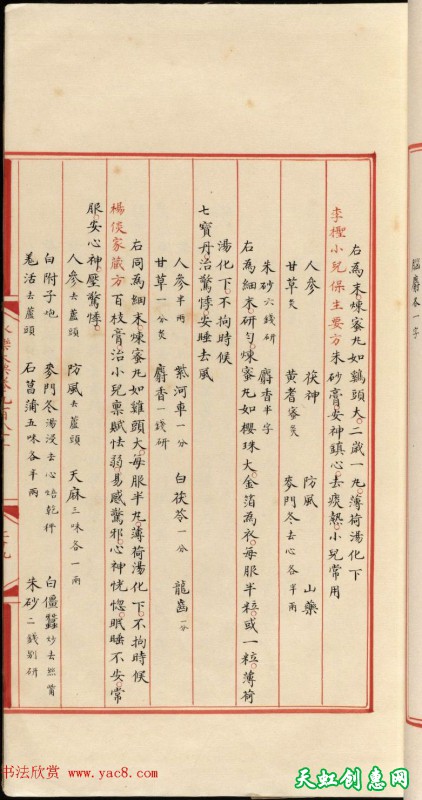 右為末煉蜜丸如鷄頭大二歲一丸薄荷湯化下
李檉小兒保生要方朱砂膏安神鎮心去痰熱小兒常用
人參 茯神 防風 山藥
甘草炙 黃耆蜜炙 麥門冬去心各半兩
朱砂六錢研 麝香半字
右為細末研勻煉蜜丸如櫻珠大金箔為衣每服半粒或一粒薄荷
湯化下不拘時候
七寶丹治驚悸安睡去風
人參半兩 紫河車一分 白茯苓一分 龍齒一分
甘草一分炙 麝香一錢研
右同為細末煉蜜丸如雞頭大每服半丸薄荷湯化下不拘時候
楊倓家藏方百枝膏治小兒稟賦怯弱易感驚邪心神恍惚眠睡不安常
服安心神壓驚悸
人參去蘆頭 防風去蘆頭 天麻三味各一兩
白附子炮 麥門冬湯浸去心焙乾秤 白僵蠶炒去絲觜
羗活去蘆頭 石菖蒲五味各半兩 朱砂二錢別研
各一字
书法欣赏 www.yac8.com
天虹创惠网